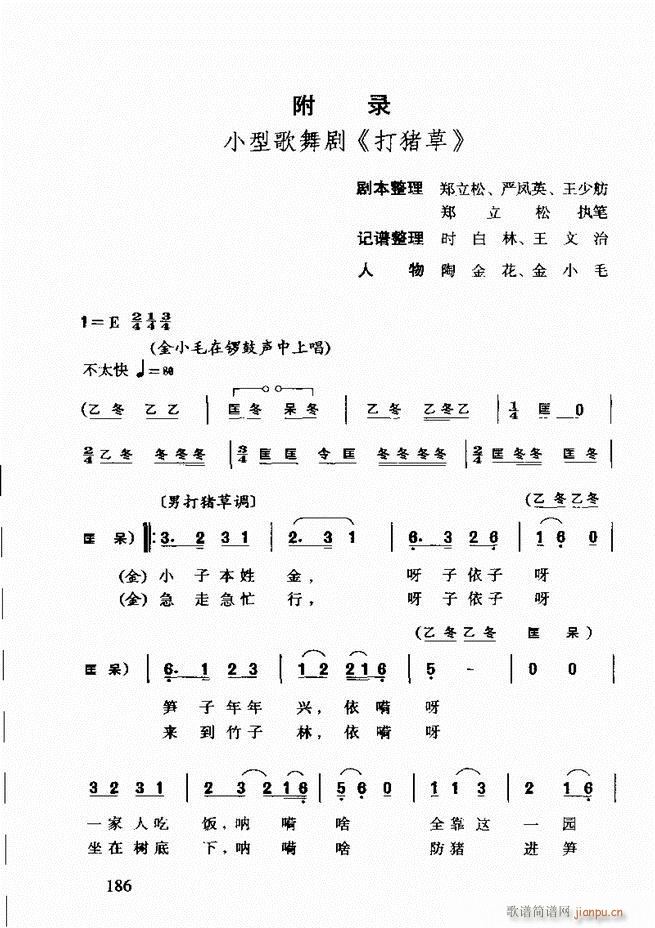 附 录
小型歌舞剧《打猪草》
剧本整理 郑立松、严凤英、王少舫
郑 立 松 执笔
记谱整理 时 白 林、王 文 治
人 物 陶 金 花、金 小 毛
1=E 2/4 1/4 3/4
(金小毛在锣鼓声中上唱)
不太快 ♩=80
(乙 冬 乙 乙 | 匡 冬 呆 冬 | 乙 冬 乙冬乙 | 1/4 匡 0
2/4 乙 冬 冬冬冬 | 3/4 匡 匡 令 匡 冬冬冬冬 | 2/4 匡 冬冬 匡 冬 |
〔男打猪草调〕 (乙冬乙冬
匡 呆) ‖: 3. 2 3 1 | 2. 3 1 | 6. 3 2 6 | 1 6 0
(金) 小 子 本 姓 金, 呀 子 依 子 呀
(金) 急 走 急 忙 行, 呀 子 依 子 呀
(乙冬乙冬 匡 呆)
匡 呆) | 6. 1 2 3 | 1 2 2 1 6 | 5 - | 0 0
笋 子 年 年 兴, 依 嗬 呀
来 到 竹 子 林, 依 嗬 呀
3 2 3 1 | 2 3 2 2 1 6 | 5 6 0 | 1 1 3 | 2 1 6
一 家 人 吃 饭, 呐 嗬 啥 全 靠 这 一 园
坐 在 树 底 下, 呐 嗬 啥 防 猪 进 笋
186
歌谱简谱网 jianpu.cn